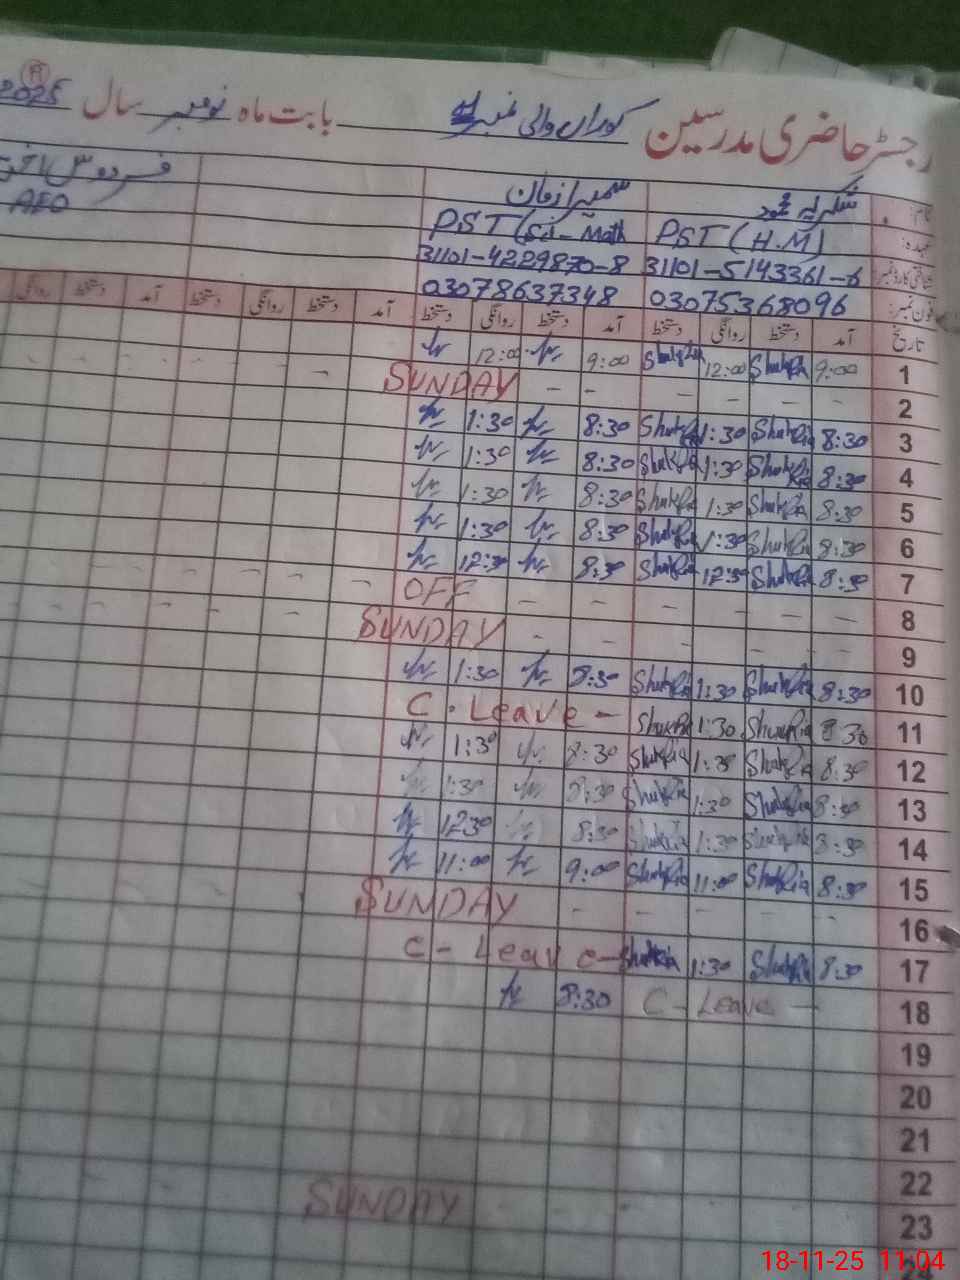 رجسٹر حاضری مدرسین کوراں والی نمبر بابت ماہ نومبر سال 2025
نام: شکریہ سمیرا زمان فردوس اختر
عہدہ: PST (H.M) PST (Sci-Math AEO
شناختی کارڈ نمبر: 31101-5143361-6 31101-4229870-8
فون نمبر: 03075368096 03078637348
تاریخ آمد دستخط روانگی دستخط آمد دستخط روانگی دستخط آمد دستخط روانگی دستخط آمد دستخط روانگی
1 9:00 Shakria 12:00 Shakria 9:00 12:00
2 - - - - - - SUNDAY - -
3 8:30 Shakria 1:30 Shakria 8:30 1:30
4 8:30 Shakria 1:30 Shakria 8:30 1:30
5 8:30 Shakria 1:30 Shakria 8:30 1:30
6 8:30 Shakria 1:30 Shakria 8:30 1:30
7 8:30 Shakria 12:30 Shakria 8:30 12:30
8 - - - - - - OFF - - - - - -
9 - - - - - - SUNDAY - - - -
10 8:30 Shakria 1:30 Shakria 8:30 1:30
11 8:30 Shakria 1:30 Shakria C. Leave -
12 8:30 Shakria 1:30 Shakria 8:30 1:30
13 8:30 Shakria 1:30 Shakria 8:30 1:30
14 8:30 Shakria 1:30 Shakria 8:30 1230
15 8:30 Shakria 11:00 Shakria 9:00 11:00
16 - - - - - SUNDAY
17 8:30 Shakria 1:30 Shakria C - Leave -
18 C - Leave - 8:30
19
20
21
22
23 SUNDAY
18-11-25 11:04